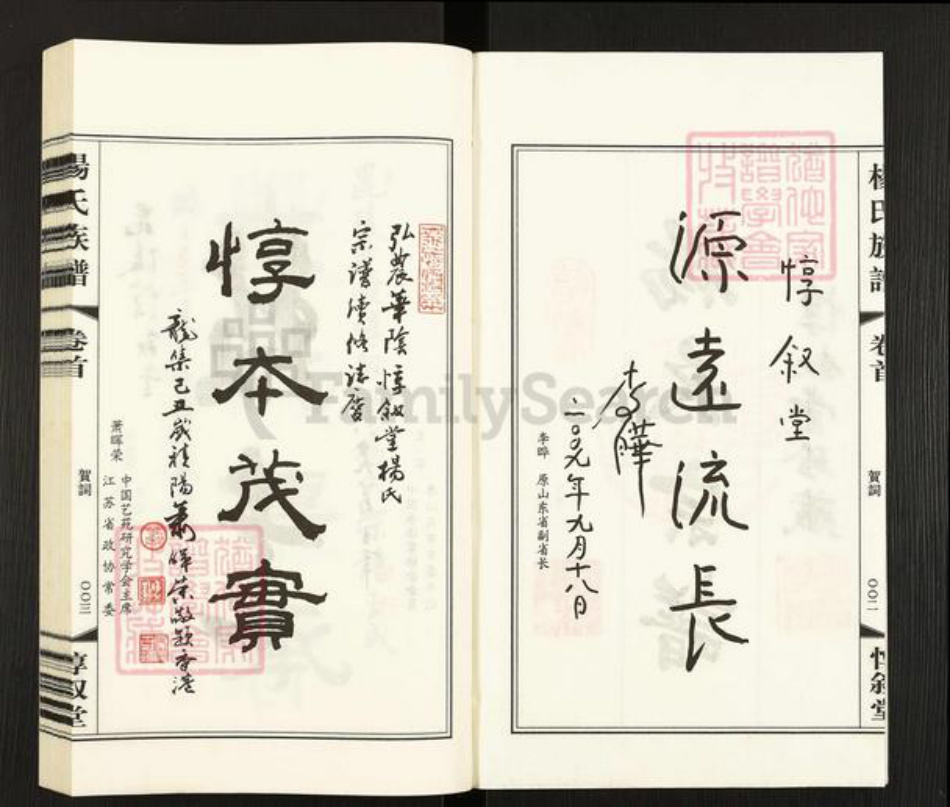 楊氏族譜
卷首
賀詞
〇〇二
惇敘堂
惇叙堂
源遠流長
李曄
二〇〇九年九月十八日
李晔 原山东省副省长
弘農華陰惇叙堂楊氏
宗譜續修誌慶
惇本茂實
龍集己丑歲
蕭暉榮敬題香港
萧晖荣 中国艺苑研究学会主席
江苏省政协常委
楊氏族譜
卷首
賀詞
〇〇三
惇叙堂
FamilySearch